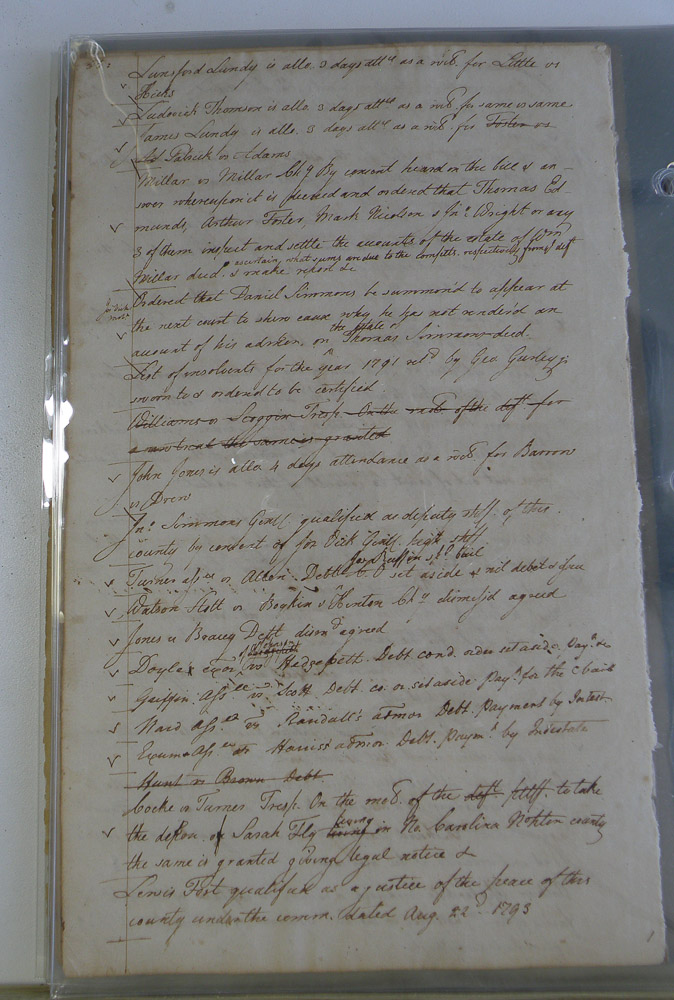 Lunsford Lundy is allo. 3 days attce as a wits. for Little vs
Hicks
Ludowick Thomson is allo. 3 days attce as a wits. for same vs same
James Lundy is allo. 3 days attce as a wits. for Foster vs
Patrick vs Adams
Millar vs Millar Chy By consent heard on the bill & an-
swer whereupon it is decreed and ordered that Thomas Ed
munds, Arthur Foster, Mark Nicolson & Jno. Wright or any
3 of them inspect and settle the accounts of the estate of Wm
ascertain, what sums are due to the complts. respectively from ye deft
Millar decd. & make report &c
Ordered that Daniel Simmons be summon'd to appear at
the next court to shew cause why he has not render'd an
the estate of
account of his admon. on Thomas Simmons decd.
List of insolvents for the year 1791 retd by Geo. Gurley js
sworn to & ordered to be certified
Williams vs Scoggin Tresp. On the mots of the deft for
a new trial the same is granted
John Jones is allo. 4 days attendance as a wits. for Barrow
vs Drew
Jno. Simmons Gent qualified as deputy shff. of this
county by consent of Jas Dick Gent. high shff.
Jos. Ruffin sp. bail
Turner assee vs Allen Debt C. O set aside & nil debet & issue
Watson & Holt vs Boykin & Hinton Chy dismiss'd agreed
Jones vs Bracey Debt dismd agreed
Doyles exor vs Hedgepeth Debt cond. order set aside paymt &c
Griffin Assee vs Scott Debt co. or. set aside paymt for the c bail
Ward Assee vs Randall's admor Debt. Payment by Intest
Exum Assee vs Harris's admor Debt. Paymt by Intestate
Hunt vs Brown Debt
Cocke vs Turner Tresp. On the mots. of the deft pltff to take
living
the depon. of Sarah Fly living in No. Carolina Nohton county
the same is granted giving legal notice &
Lewis Fort qualified as a justice of the peace of this
county under the comm. dated Aug. 22d 1793